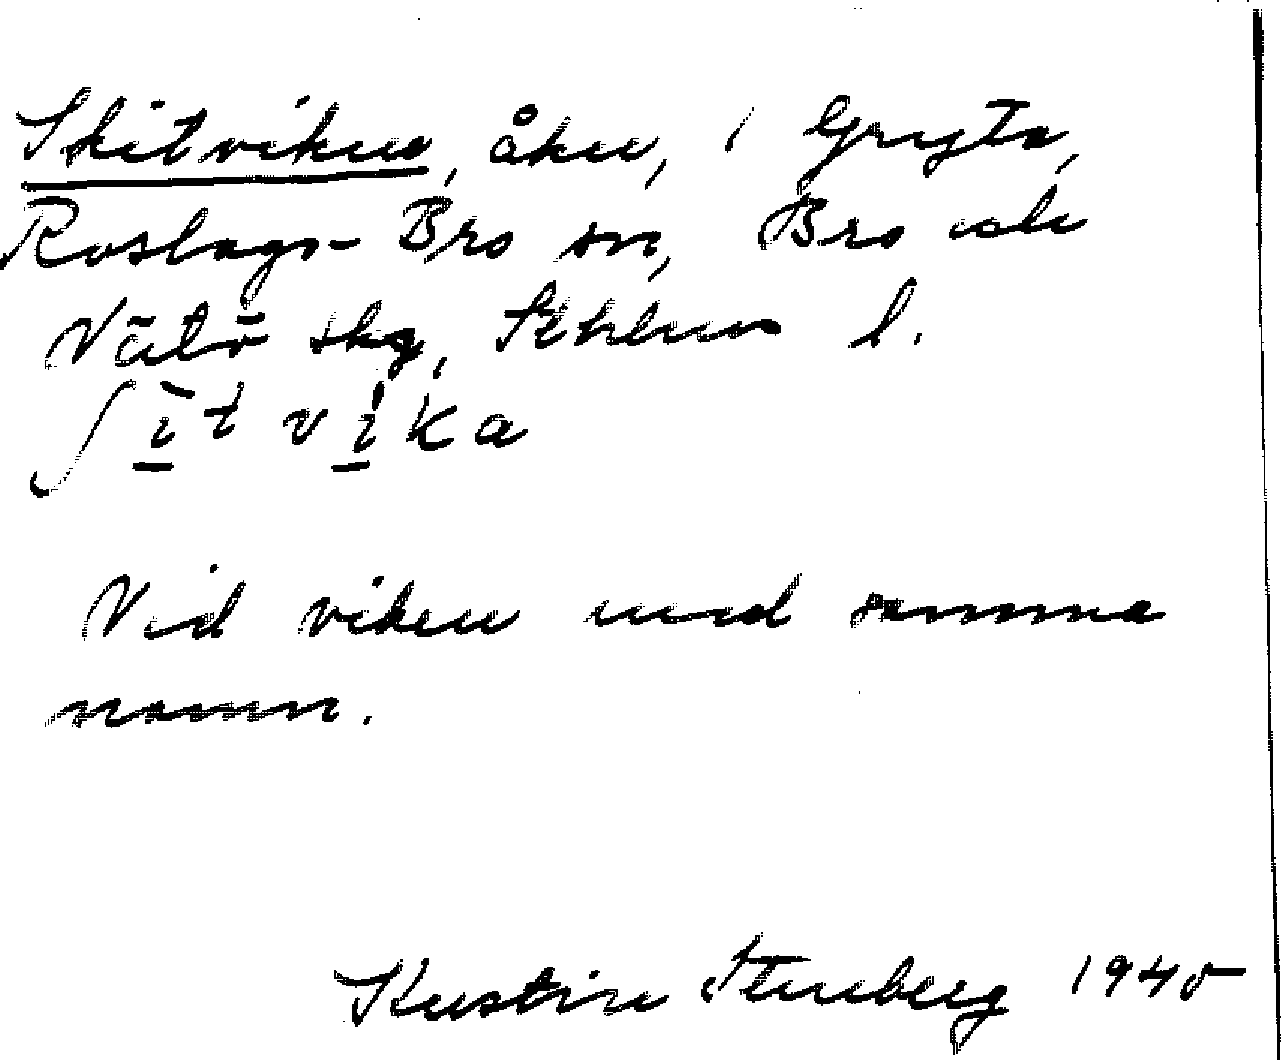 Skitviken, åker, i Gryta,
Roslags-Bro sn, Bro och
Vätö skg, Sthlms l.
ʃi̱̅t vi̱ka
Vid viken med samma
namn.
Kerstin Stenberg 1940